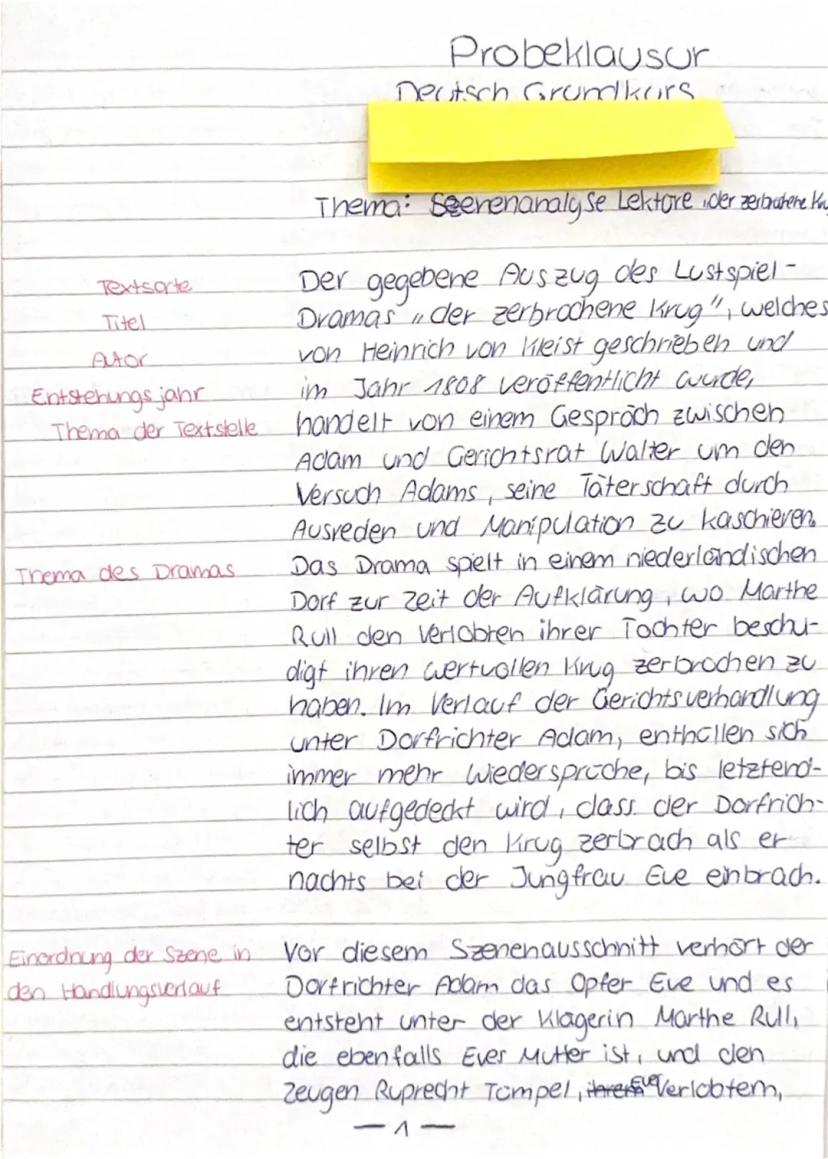 Probeklausur
Deutsch Grundkurs
Thema: Szenenanalyse Lektüre „der zerbrochene Kru
Textsorte Der gegebene Auszug des Lustspiel-
Titel Dramas „der zerbrochene Krug“, welches
Autor von Heinrich von Kleist geschrieben und
Entstehungsjahr im Jahr 1808 veröffentlicht wurde,
Thema der Textstelle handelt von einem Gespräch zwischen
Adam und Gerichtsrat Walter um den
Versuch Adams, seine Täterschaft durch
Ausreden und Manipulation zu kaschieren.
Thema des Dramas Das Drama spielt in einem niederländischen
Dorf zur Zeit der Aufklärung, wo Marthe
Rull den Verlobten ihrer Tochter beschu-
digt ihren wertvollen Krug zerbrochen zu
haben. Im Verlauf der Gerichtsverhandlung
unter Dorfrichter Adam, enthüllen sich
immer mehr Wiedersprüche, bis letztend-
lich aufgedeckt wird, dass der Dorfrich-
ter selbst den Krug zerbrach als er
nachts bei der Jungfrau Eve einbrach.
Einordnung der Szene in Vor diesem Szenenausschnitt verhört der
den Handlungsverlauf Dorfrichter Adam das Opfer Eve und es
entsteht unter der Klägerin Marthe Rull,
die ebenfalls Eves Mutter ist, und den
Zeugen Ruprecht Tümpel, Eve Verlobtem,
— 1 —